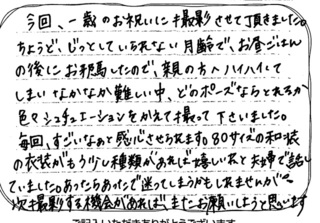 今回、一歳のお祝いに撮影させて頂きました。
ちょうど、じっとしていられない月齢で、お昼ごはん
の後にお邪魔したので、親の方へハイハイして
しまいなかなか難しい中、どのポーズならとれるか
色々シチュエーションをかえて撮って下さいました。
毎回、すごいなぁと感心させられます。80サイズの和装
の衣装がもう少し種類があれば嬉しいねと夫婦で話し
ていました。あったらあったで迷ってしまうかもしれませんが
次撮影する機会があれば、またお願いしようと思います
ご記入いただきありがとうございます